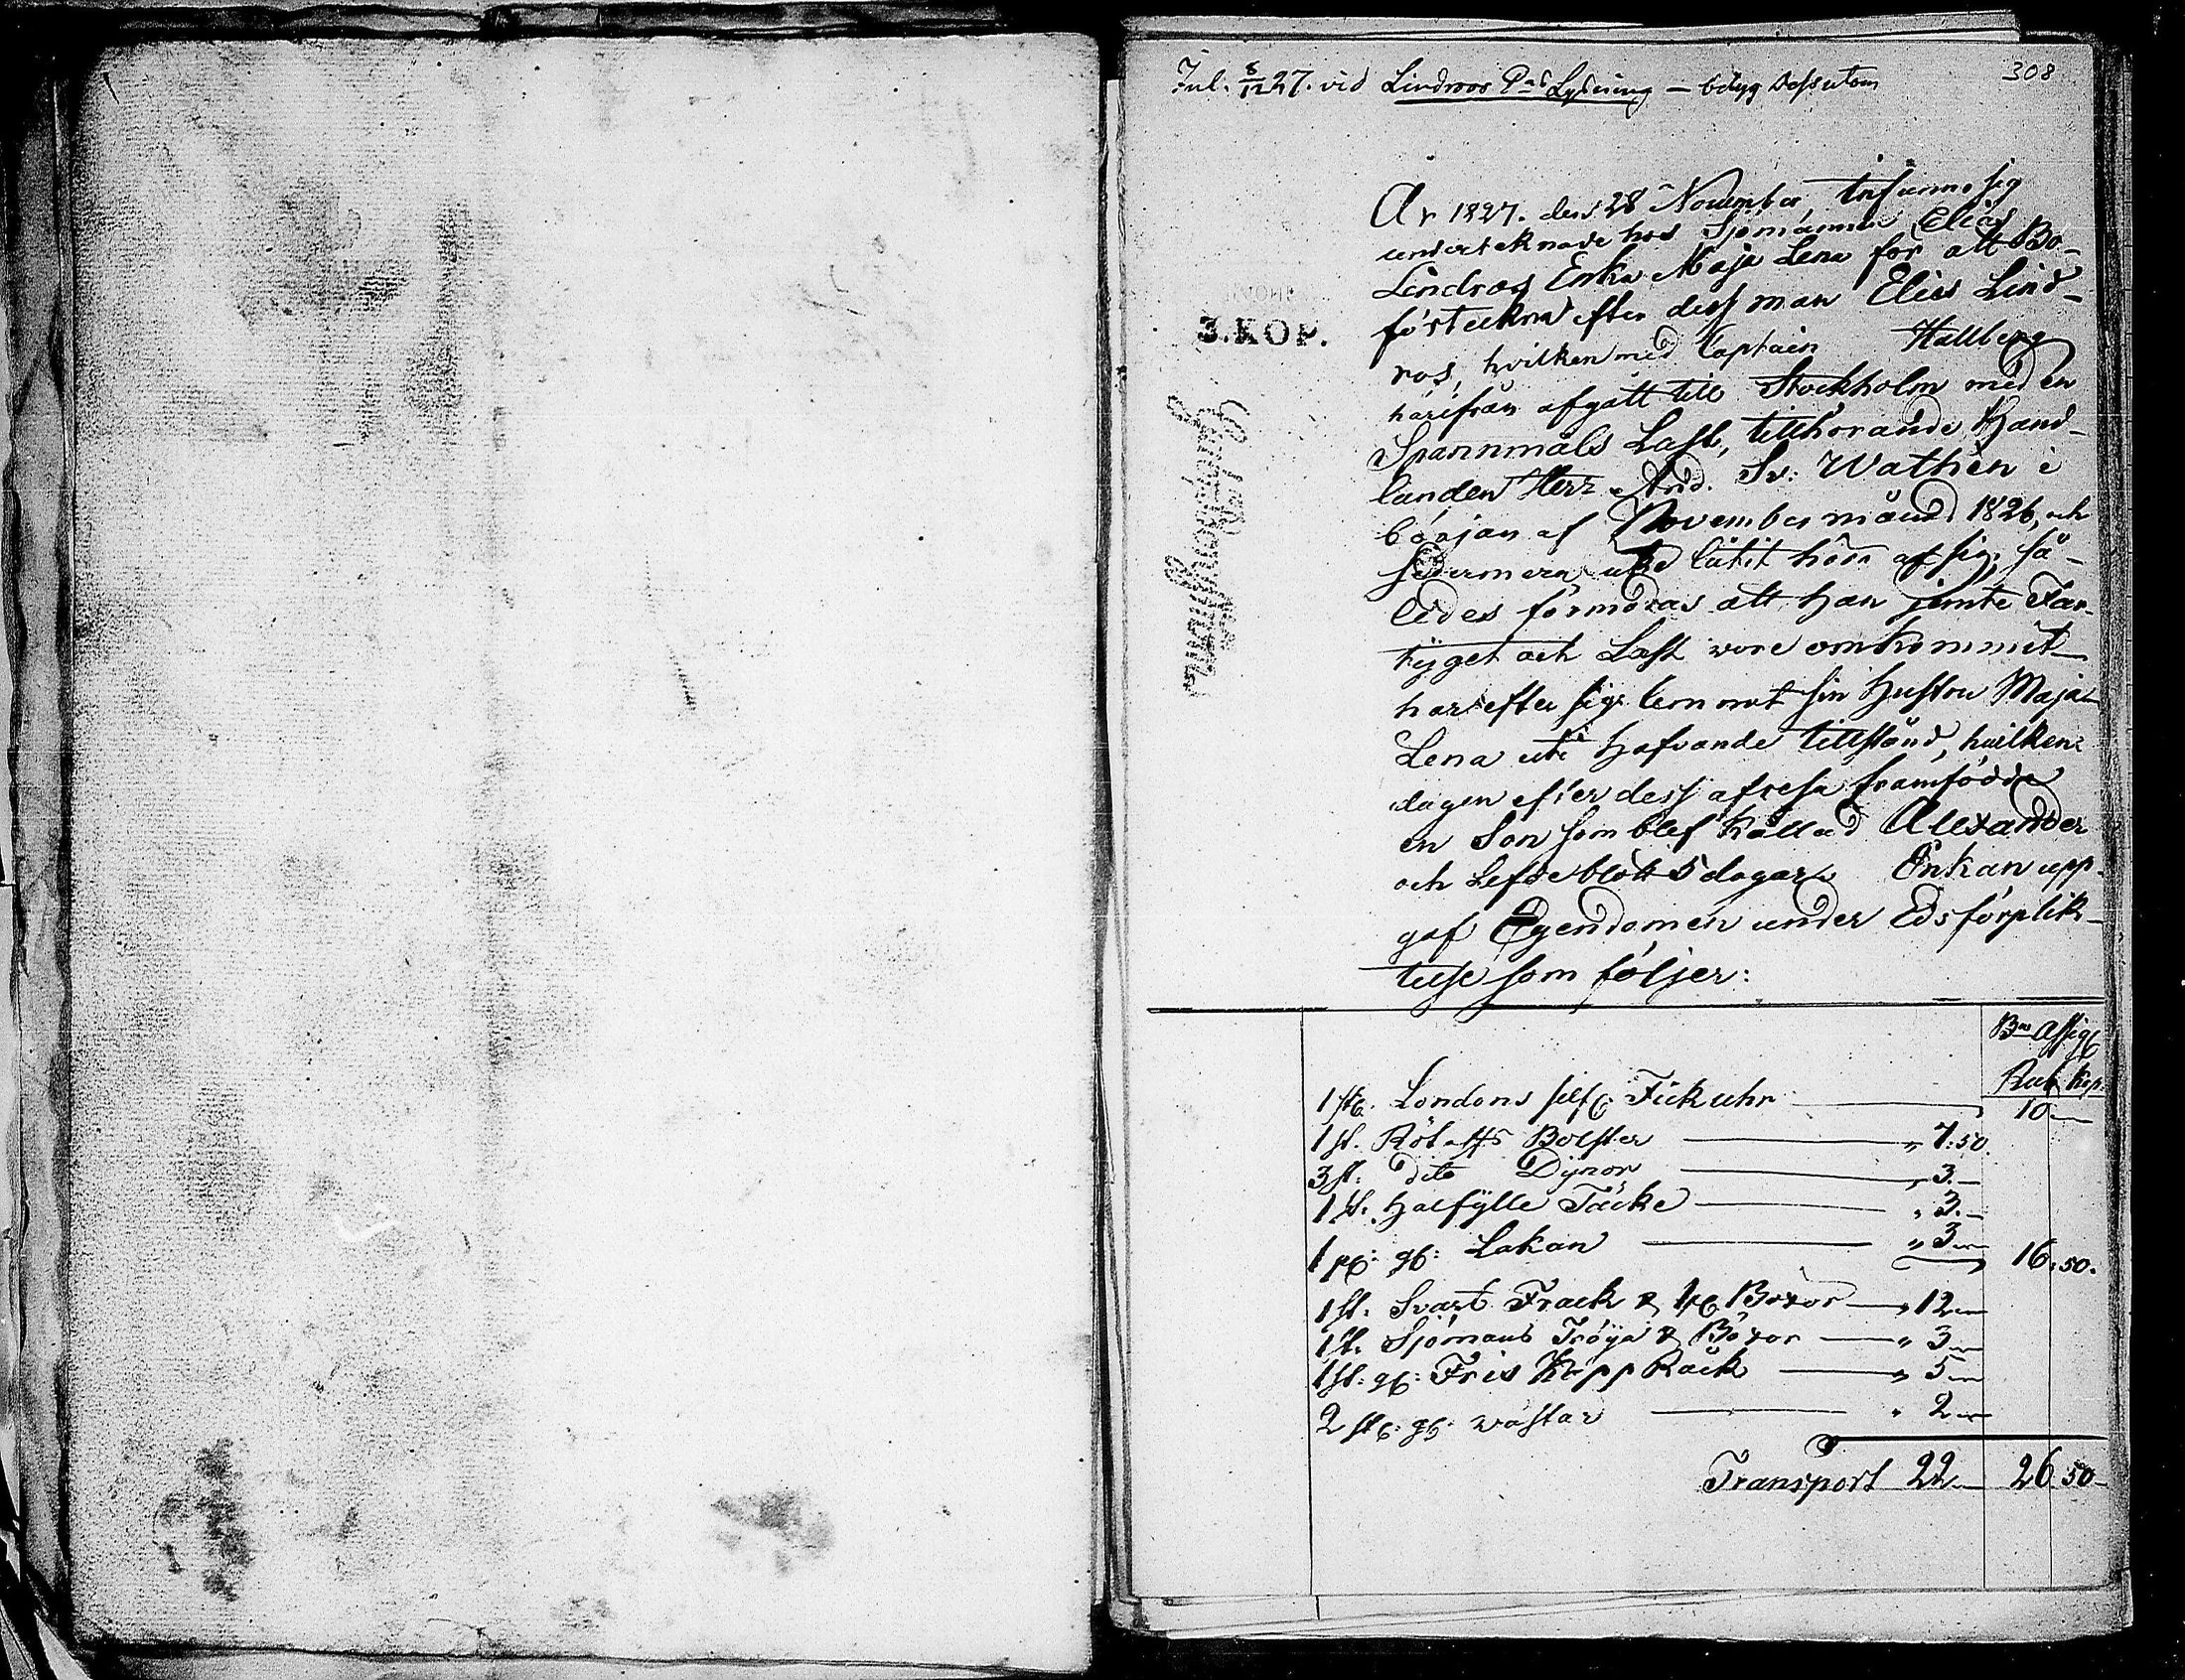 308
Inl. 8/12 27. vid Lindroos Lysning — betyg dessutom
År 1827. den 28 November, infunno sig
underteknade hos Sjömannen Elias
Lindros Enka Maja Lena för att Bo-
förtekna efter dess man Elias Lind-
ros, hvilken med Captain Hallberg
härifrån afgått till Stockholm med en
Spannmåls Last, tillhörande Hand-
landen Herr And. Sv: Wathén i
början af November månad 1826, och
sedermera icke låtit höra af sig, så-
ledes förmodas att han jemte Far-
tyget och Last vore omkommit
har efter sig lemnat sin Hustru Maja
Lena uti hafvande tillstånd, hvilken
dagen efter dess afresa framfödde
en Son som blef kallad Alexander
och Lefde blott 5 dagar. Enkan upp-
gaf Egendomen under Edsförplik-
telse som följer:
3.KOP.
B:co Assig:
Rub. Kop.
1 st. Londons silf: Fickuhr — 10 —
1 st. Bolster — " 7:50.
3 st: dito Dynor — " 3.—
1 st. Halfylle Täcke — " 3.—
1 p: gl: Lakan — " 3 — 16:50.
1 st. Svart Frack & 1 p Böxor — " 12 —
1 st. Sjömans Tröja & Böxor — " 3 —
1 st: gl: Fris Kapp Råck — " 5 —
2 st: gl: wästar — " 2 —
Transport 22 — 26.50 —